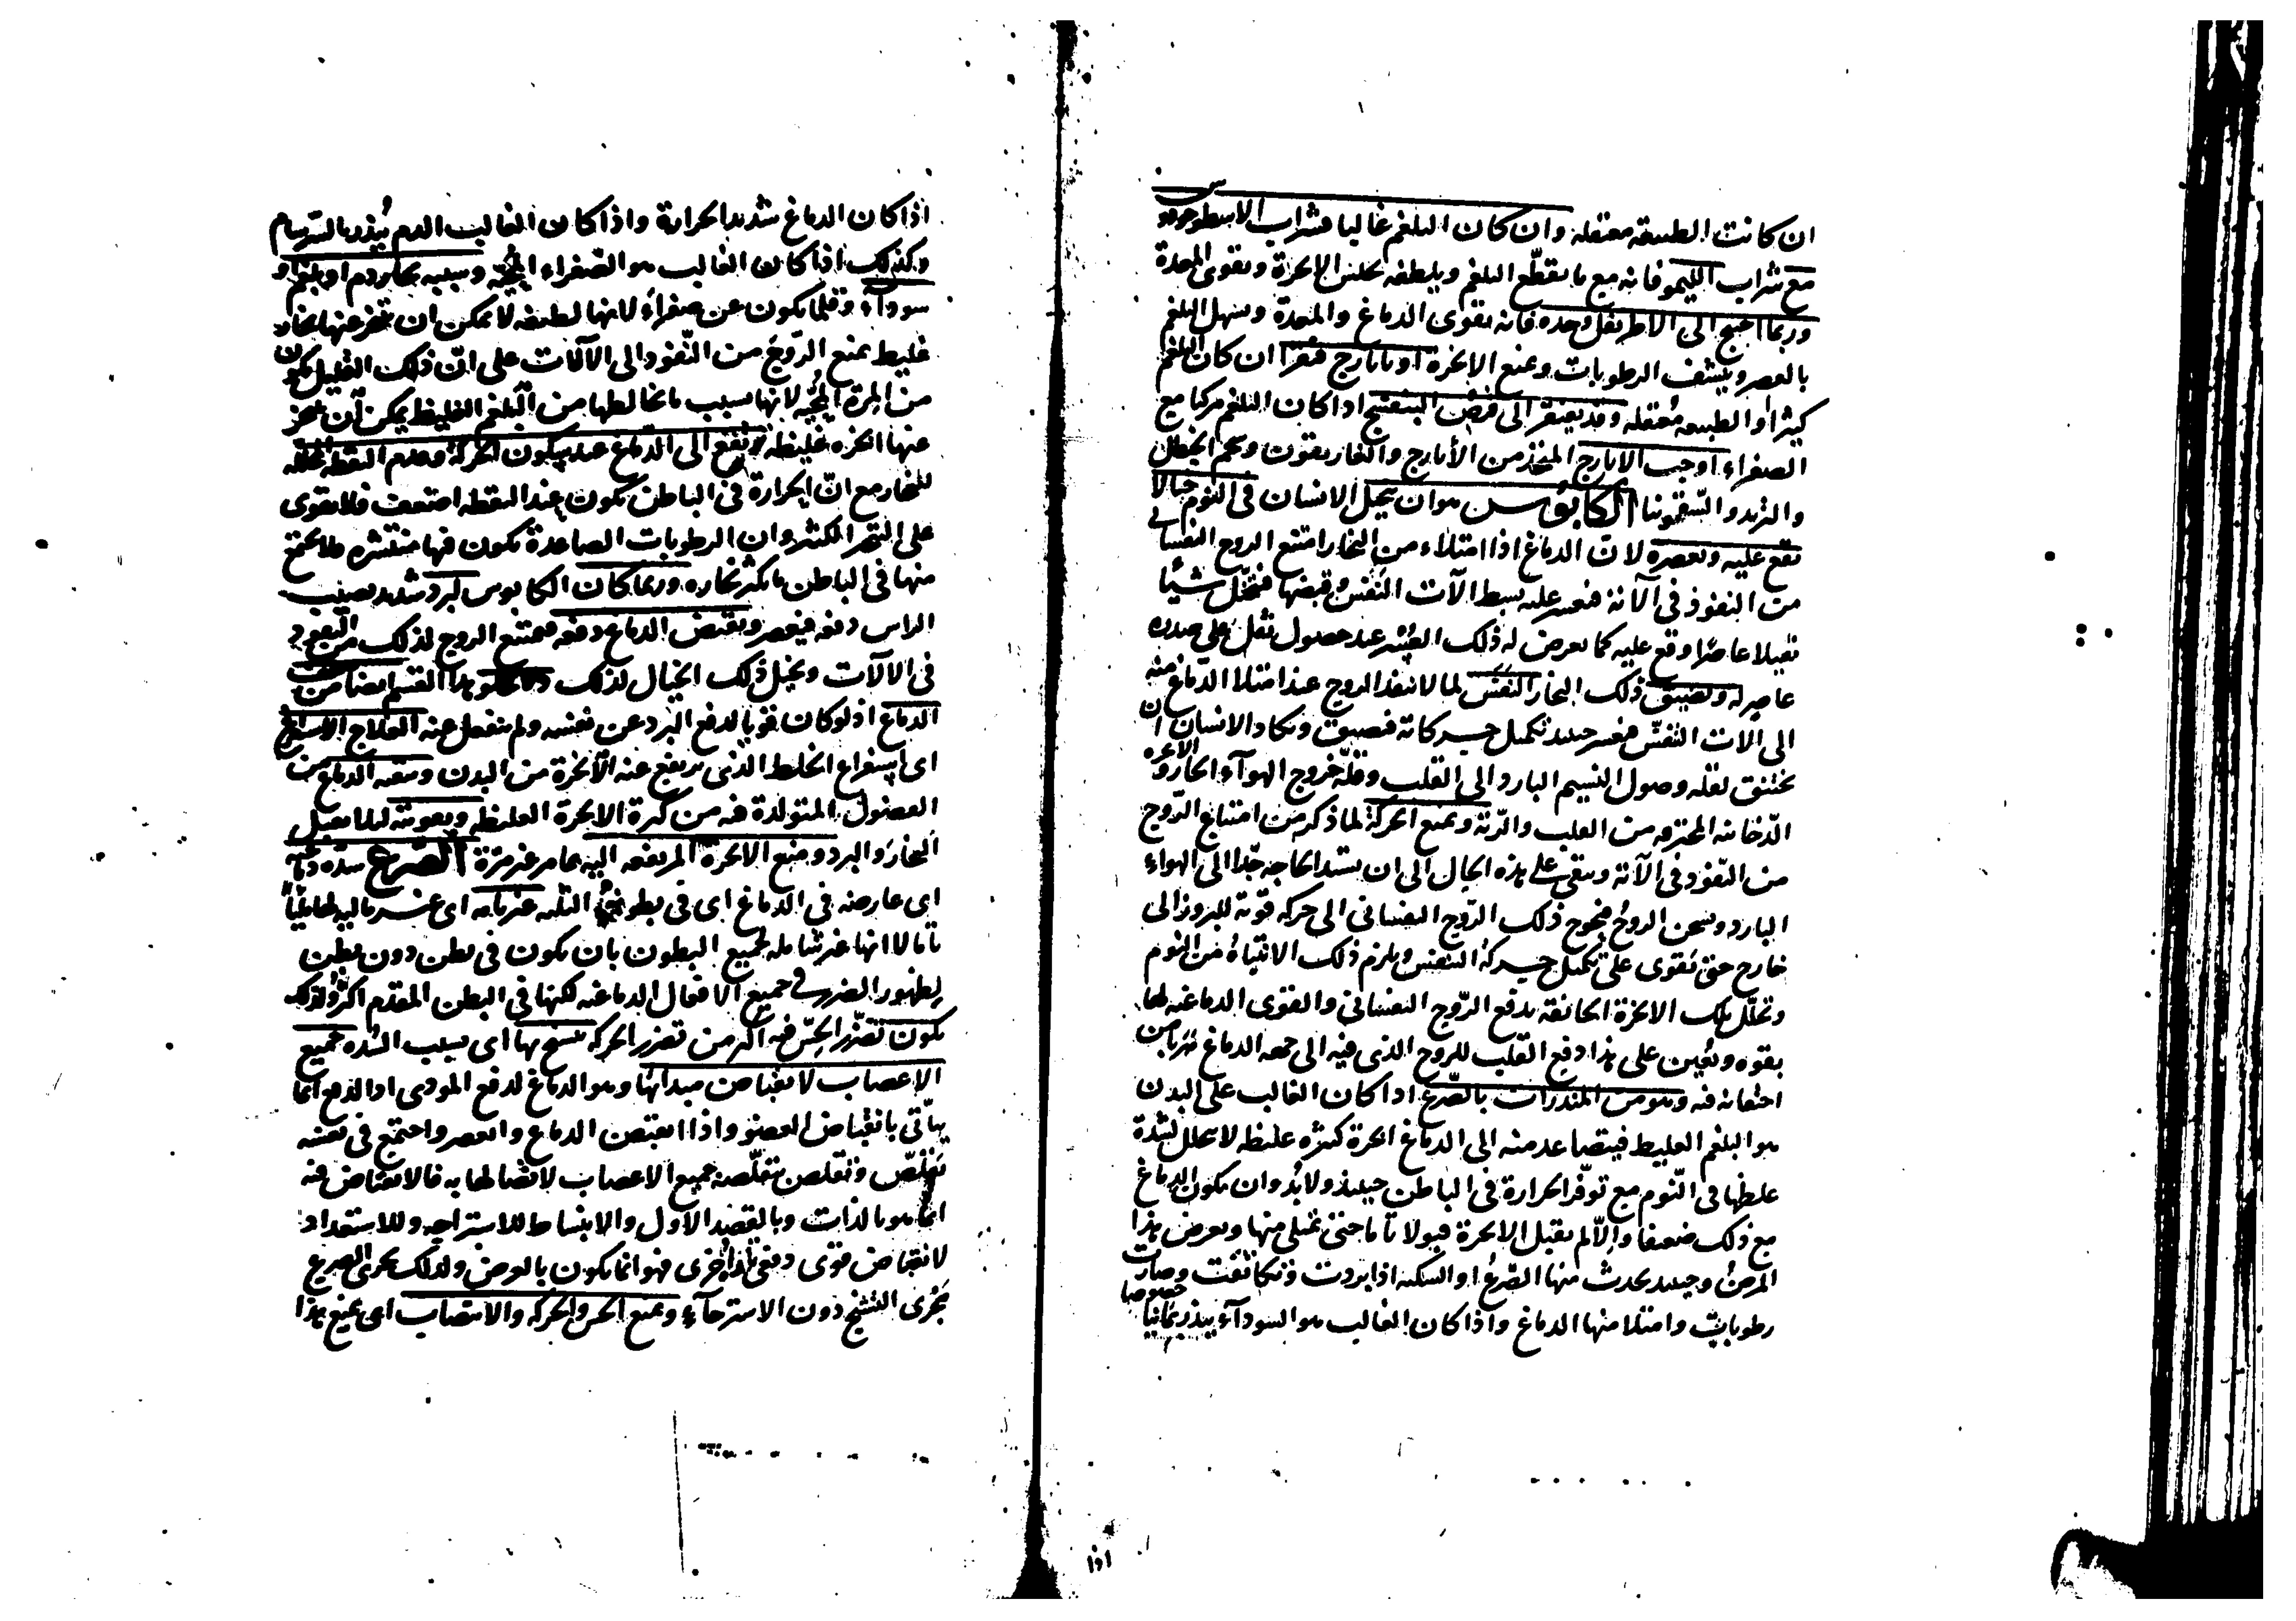 ان كانت الطبيعة معتقلة وان كان البلغم غالبا فشراب الاسطوخودوس
مع شراب الليمو فانه مع ما يقطع البلغم ويلطفه يحلل الابخرة ويقوى المعدة
وربما احتيج الى الاطريفل وحده فانه يقوى الدماغ والمعدة ويسهل البلغم
بالعصر وينشف الرطوبات ويمنع الابخرة او بايارج فيقرا ان كان البلغم
كثيرا والطبيعة معتقلة وقد يفتقر الى قرص البنفسج اذا كان البلغم مركبا مع
الصفراء او حب الايارج المتخذ من الأيارج والغاريقون وشحم الحنظل
والتربد والسقمونيا الكابوس هو ان يتخيل الانسان في النوم خيالا
يقع عليه ويعصره لان الدماغ اذا امتلاء من البخار امتنع الروح النفسانى
من النفوذ فى آلاته فيعسر عليه بسط آلات التنفس وقبضها فيتخيل شيئا
ثقيلا عاصرا وقع عليه كما يعرض له ذلك العسر عند حصول ثقل على صدره
عاصر له ويضيق ذلك البخار النفس لما لا ينفذ الروح عند امتلاء الدماغ منه
الى آلات التنفس فيعسر حينئذ تكميل حركاته فيضيق ويكاد الانسان ان
يختنق لقلة وصول النسيم البارد الى القلب وقلة خروج الهوآء الحار والابخرة
الدخانية المحترقة من القلب والرئة ويمنع الحركة لما ذكر من امتناع الروح
من النفوذ فى آلاته ويبقى على هذه الحال الى ان يشتد الحاجة جدا الى الهواء
البارد ويسخن الروح فيحوج ذلك الروح النفسانى الى حركة قوية للبروز الى
خارج حتى يقوى على تكميل حركة التنفس ويلزم ذلك الانتباه من النوم
وتحلل تلك الابخرة الخانقة بدفع الروح النفسانى والقوى الدماغية لها
بقوة ويعين على هذا دفع القلب للروح الذى فيه الى جهة الدماغ هربا من
احتقانه فيه وهو من المنذرات بالصرع اذا كان الغالب على البدن
هو البلغم الغليظ فيتصاعد منه الى الدماغ ابخرة كثيرة غليظة لا تتحلل لشدة
غلظها فى النوم مع توفر الحرارة فى الباطن حينئذ ولا بد وان يكون الدماغ
مع ذلك ضعيفا والا لم يقبل الابخرة قبولا تاما حتى يمتلى منها ويعرض هذا
المرض وحينئذ يحدث منها الصرع او السكتة اذا بردت وتكاثفت وصارت
رطوبات وامتلا منها الدماغ واذا كان الغالب هو السودآء ينذر بمانيا خصوصا
اذا
اذا كان الدماغ شديد الحرارة واذا كان الغالب الدم ينذر بالسرسام
وكذلك اذا كان الغالب هو الصفراء المحية وسببه بخار دم او بلغم او
سودآء وقلما يكون عن صفراء لانها لطيفة لا يمكن ان يتبخر عنها بخار
غليظ يمنع الروح من النفوذ الى الآلات على ان ذلك القليل يكون
من المرة المحية لانها بسبب ما خالطها من البلغم الغليظ يمكن ان يتبخر
عنها ابخرة غليظة يرتفع الى الدماغ عند سكون الحركة وعدم اليقظة المحللة
للبخار مع ان الحرارة فى الباطن يكون عند اليقظة اضعف فلا يقوى
على التبخير الكثير وان الرطوبات الصاعدة يكون فيها منتشرة فلا يجتمع
منها فى الباطن ما يكثر بخاره وربما كان الكابوس لبرد شديد يصيب
الراس دفعة فيعصر ويقبض الدماغ دفعة فيمتنع الروح لذلك من النفوذ
فى الآلات ويخيل ذلك الخيال لذلك ولا يخلو هذا القسم ايضا من ضعف
الدماغ اذ لو كان قويا لدفع البرد عن نفسه ولم ينفعل عنه العلاج الاستفراغ
اى استفراغ الخلط الذى يرتفع عنه الأبخرة من البدن وتنقية الدماغ من
الفضول المتولدة فيه من كثرة الابخرة الغليظة وتقويته لئلا يقبل
البخار والبرد ومنع الابخرة المرتفعة اليه بما مر غير مرة الصرع سدة دماغية
اى عارضة فى الدماغ اى فى بطونه الثلثة غير تامة اى غير مالية لها مليئا
تاما لا انها غير شاملة لجميع البطون بان يكون فى بطن دون بطن
لظهور الضرر فى جميع الافعال الدماغية لكنها فى البطن المقدم اكثر ولذلك
يكون تضرر الحس فيه اكثر من تضرر الحركة يتشنج بها اى بسبب السدة جميع
الاعصاب لانقباض مبدائها وهو الدماغ لدفع المؤذى اذ الدفع انما
يتأتى بانقباض العضو واذا انقبض الدماغ وانعصر واجتمع فى نفسه
تقلص وتقلص بتقلصه جميع الاعصاب لاتصالها به فالانقباض فيه
انما هو بالذات وبالقصد الاول والانبساط للاستراحة وللاستعداد
لانقباض قوى دفعى تارة اخرى فهو انما يكون بالعرض ولذلك يجرى الصرع
مجرى التشنج دون الاسترخآء ويمنع الحس والحركة والانتصاب اى يمنع هذا